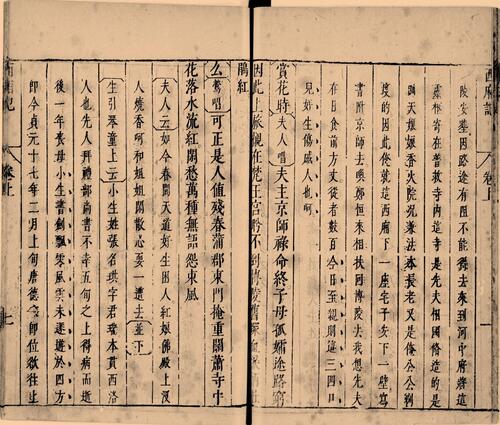 西廂記
卷上
一
陵安葬因路途有阻不能得去來到河中府將這
靈柩寄在普救寺內這寺是先夫相國修造的是
則天娘娘香火院况兼法本長老又是俺公公剃
度的因此俺就這西廂下一座宅子安下一壁寫
書附京師去喚鄭恒來相扶囘博陵去我想先夫
在日食前方丈從者數百今日至親則這三四口
見好生傷感人也呵
賞花時 夫人唱 夫主京師祿命終子母孤孀途路窮
因此上旅櫬在梵王宮盼不到博陵舊塚血淚灑杜
鵑紅
么 鶯唱 可正是人值殘春蒲郡東門掩重關蕭寺中
花落水流紅閑愁萬種無語怨東風
夫人云如今春間天道好生困人紅娘佛殿上沒
人燒香呵和姐姐閑散心耍一遭去並下
生引琴童上云小生姓張名珙字君瑞本貫西洛
人也先人拜禮部尚書不幸五旬之上得病而逝
後一年喪母小生書劍飄零風雲未遂遊於四方
即今貞元十七年二月上旬唐德宗即位欲往上
西廂記
卷上
二